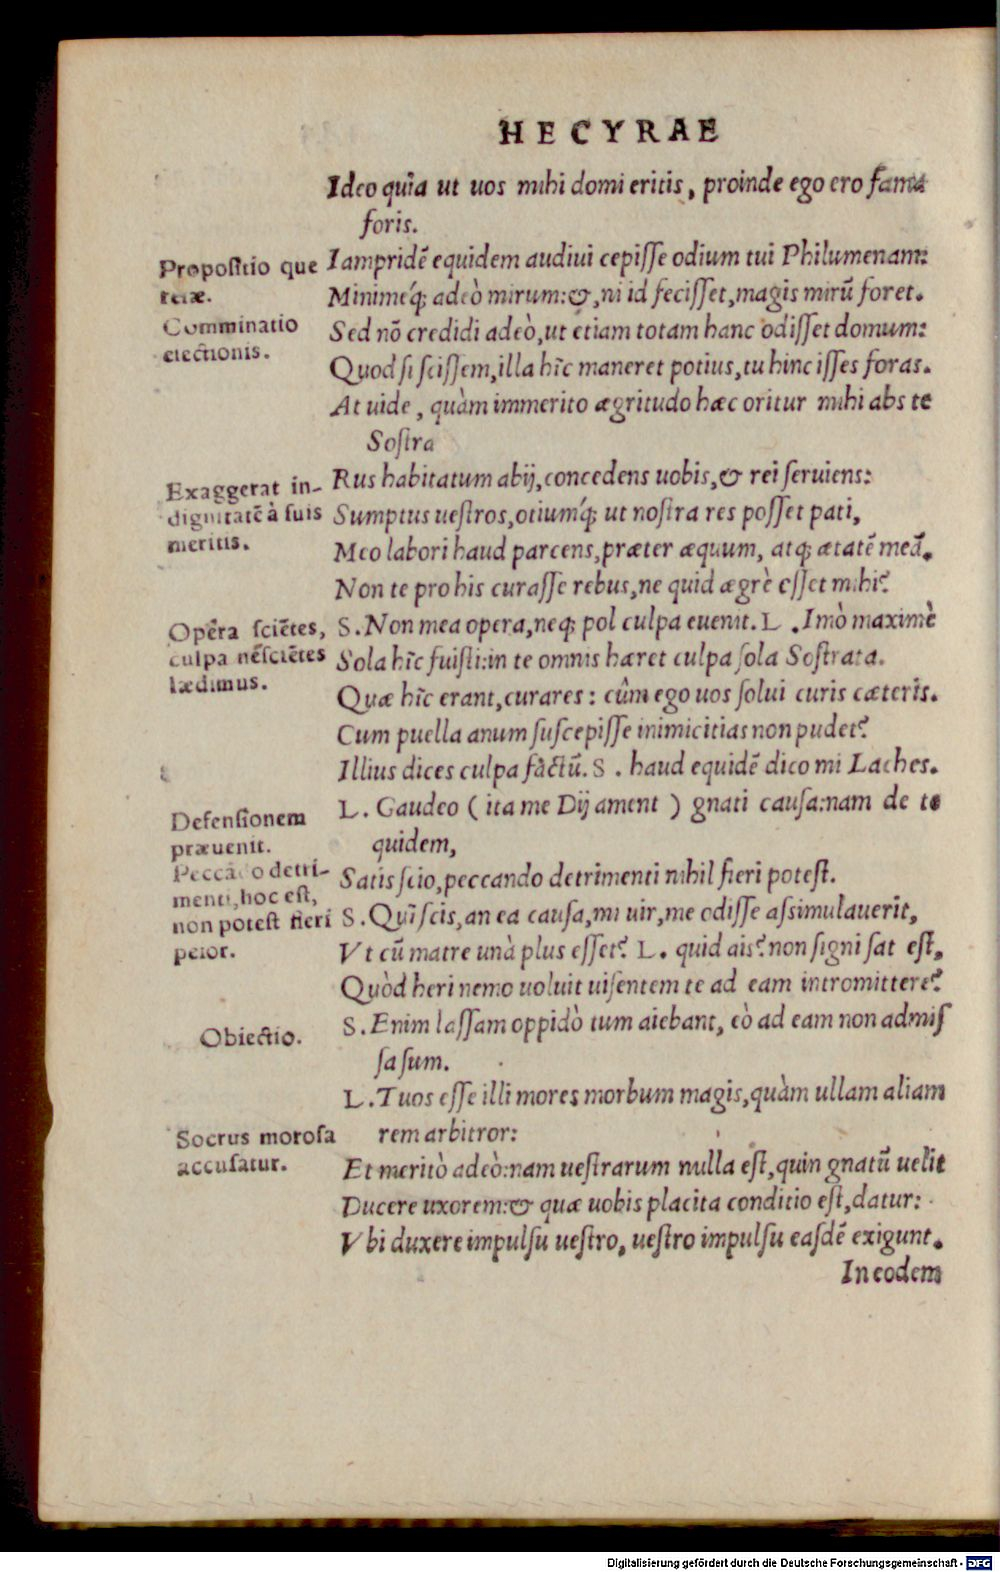 HECYRAE
Ideo quia ut uos mihi domi eritis, proinde ego ero fama
foris.
Propositio que
relæ.
Comminatio
eiectionis.
Iampridẽ equidem audiui cepisse odium tui Philumenam:
Minimeq́; adeò mirum:&, ni id fecisset, magis mirũ foret.
Sed nõ credidi adeò, ut etiam totam hanc odisset domum:
Quod si scissem, illa hîc maneret potius, tu hinc isses foras.
At uide, quàm immerito ægritudo hæc oritur mihi abs te
Sostra
Exaggerat in-
dignitatẽ à suis
meritis.
Rus habitatum abij, concedens uobis, & rei seruiens:
Sumptus uestros, otiumq́; ut nostra res posset pati,
Meo labori haud parcens, præter æquum, atq; ætatẽ meã.
Non te pro his curasse rebus, ne quid ægrè esset mihi?
Opẽra sciẽtes,
culpa nẽsciẽtes
lædimus.
S. Non mea opera, neq; pol culpa euenit. L. Imò maximè
Sola hîc fuisti: in te omnis hæret culpa sola Sostrata.
Quæ hîc erant, curares: cûm ego uos solui curis cæteris.
Cum puella anum suscepisse inimicitias non pudet?
Illius dices culpa factũ. S. haud equidẽ dico mi Laches.
Defensionem
præuenit.
Peccãdo detri-
menti, hoc est,
non potest fieri
peior.
L. Gaudeo (ita me Dij ament) gnati causa: nam de te
quidem,
Satis scio, peccando detrimenti nihil fieri potest.
S. Quî scis, an ea causa, mi uir, me odisse assimulauerit,
Vt cũ matre unà plus esset? L. quid ais? non signi sat est,
Quòd heri nemo uoluit uisentem te ad eam intromittere?
Obiectio.
S. Enim lassam oppidò tum aiebant, eò ad eam non admis
sa sum.
L. Tuos esse illi mores morbum magis, quàm ullam aliam
rem arbitror:
Socrus morosa
accusatur.
Et meritò adeò: nam uestrarum nulla est, quin gnatũ uelit
Ducere uxorem: & quæ uobis placita conditio est, datur:
Vbi duxere impulsu uestro, uestro impulsu easdẽ exigunt.
In eodem
Digitalisierung gefördert durch die Deutsche Forschungsgemeinschaft - DFG